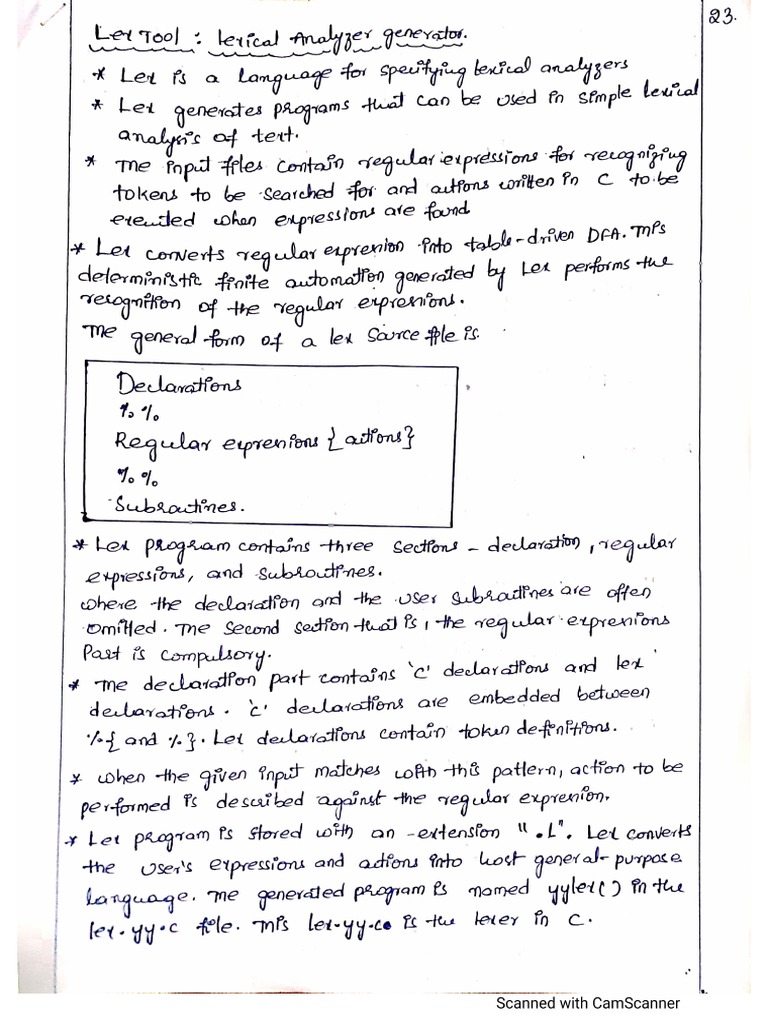 23.
Lex Tool : Lexical Analyzer generator.
* Lex is a language for specifying lexical analyzers
* Lex generates programs that can be used in simple lexical
analysis of text.
* The input files contain regular expressions for recognizing
tokens to be searched for and actions written in C to be
executed when expressions are found
* Lex converts regular expression into table-driven DFA. This
deterministic finite automation generated by Lex performs the
recognition of the regular expressions.
The general form of a lex source file is.
Declarations
%%
Regular expressions {actions}
%%
Subroutines.
* Lex program contains three sections - declaration, regular
expressions, and subroutines.
where the declaration and the user subroutines are often
omitted. The second section that is, the regular expressions
Part is compulsory.
* The declaration part contains 'C' declarations and lex
declarations. 'C' declarations are embedded between
%{ and %}. Lex declarations contain token definitions.
* when the given input matches with this pattern, action to be
performed is described against the regular expression.
* Lex program is stored with an -extension ".L". Lex converts
the user's expressions and actions into host general-purpose
language. The generated program is named yylex() in the
lex.yy.c file. This lex.yy.c is the lexer in C.
Scanned with CamScanner